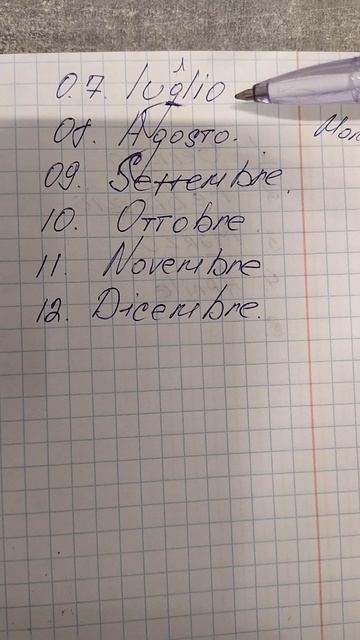 07. luglio
08. Agosto.
09. Settembre.
10. Ottobre
11. Novembre
12. Dicembre.